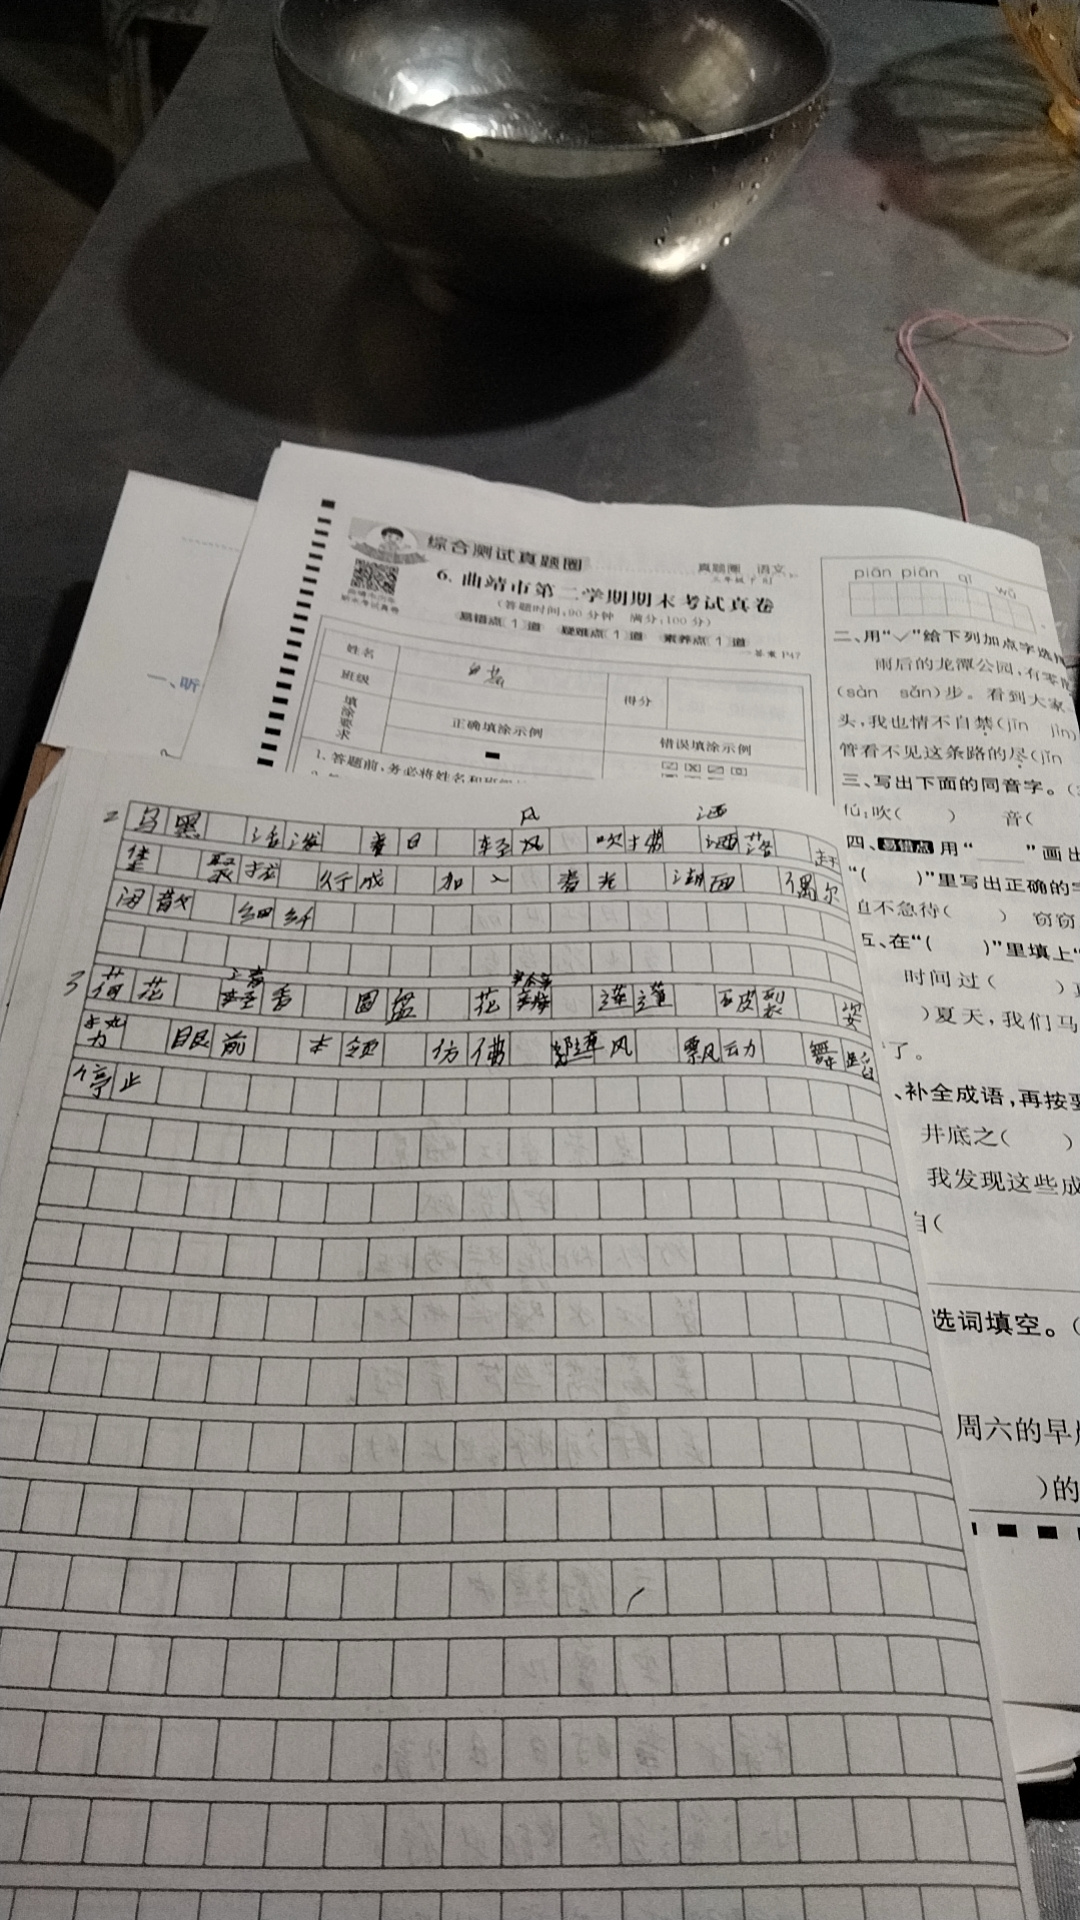 综合测试真题圈
真题圈 语文
6. 曲靖市第二学期期末考试真卷
(答题时间:90分钟 满分:100分)
易错点 1 道 疑难点 1 道 素养点 1 道
答案 P47
姓名
班级
得分
填涂要求
正确填涂示例
错误填涂示例
1. 答题前,务必将姓名和
一、听
piān piān qī wǔ
二、用“✓”给下列加点字选择
雨后的龙潭公园,有零
(sàn sǎn)步。看到大家
头,我也情不自禁(jīn jìn)
管看不见这条路的尽(jǐn
三、写出下面的同音字。(
fú:吹( ) 音(
四、易错点 用“ ”画出
“( )”里写出正确的字
迫不急待( ) 窃窃
五、在“( )”里填上“
时间过( )
)夏天,我们马
了。
、补全成语,再按要
井底之( )
我发现这些成
自(
选词填空。(
周六的早
)的
风 洒
2 乌黑 活泼 春日 轻风 吹拂 洒落 赶
集 聚拢 形成 加入 春光 湖面 偶尔
闲散 细纤
3 荷花 清香 圆盘 花瓣 莲蓬 破裂 姿
势 眼前 本领 仿佛 随风 飘动 舞蹈
停止